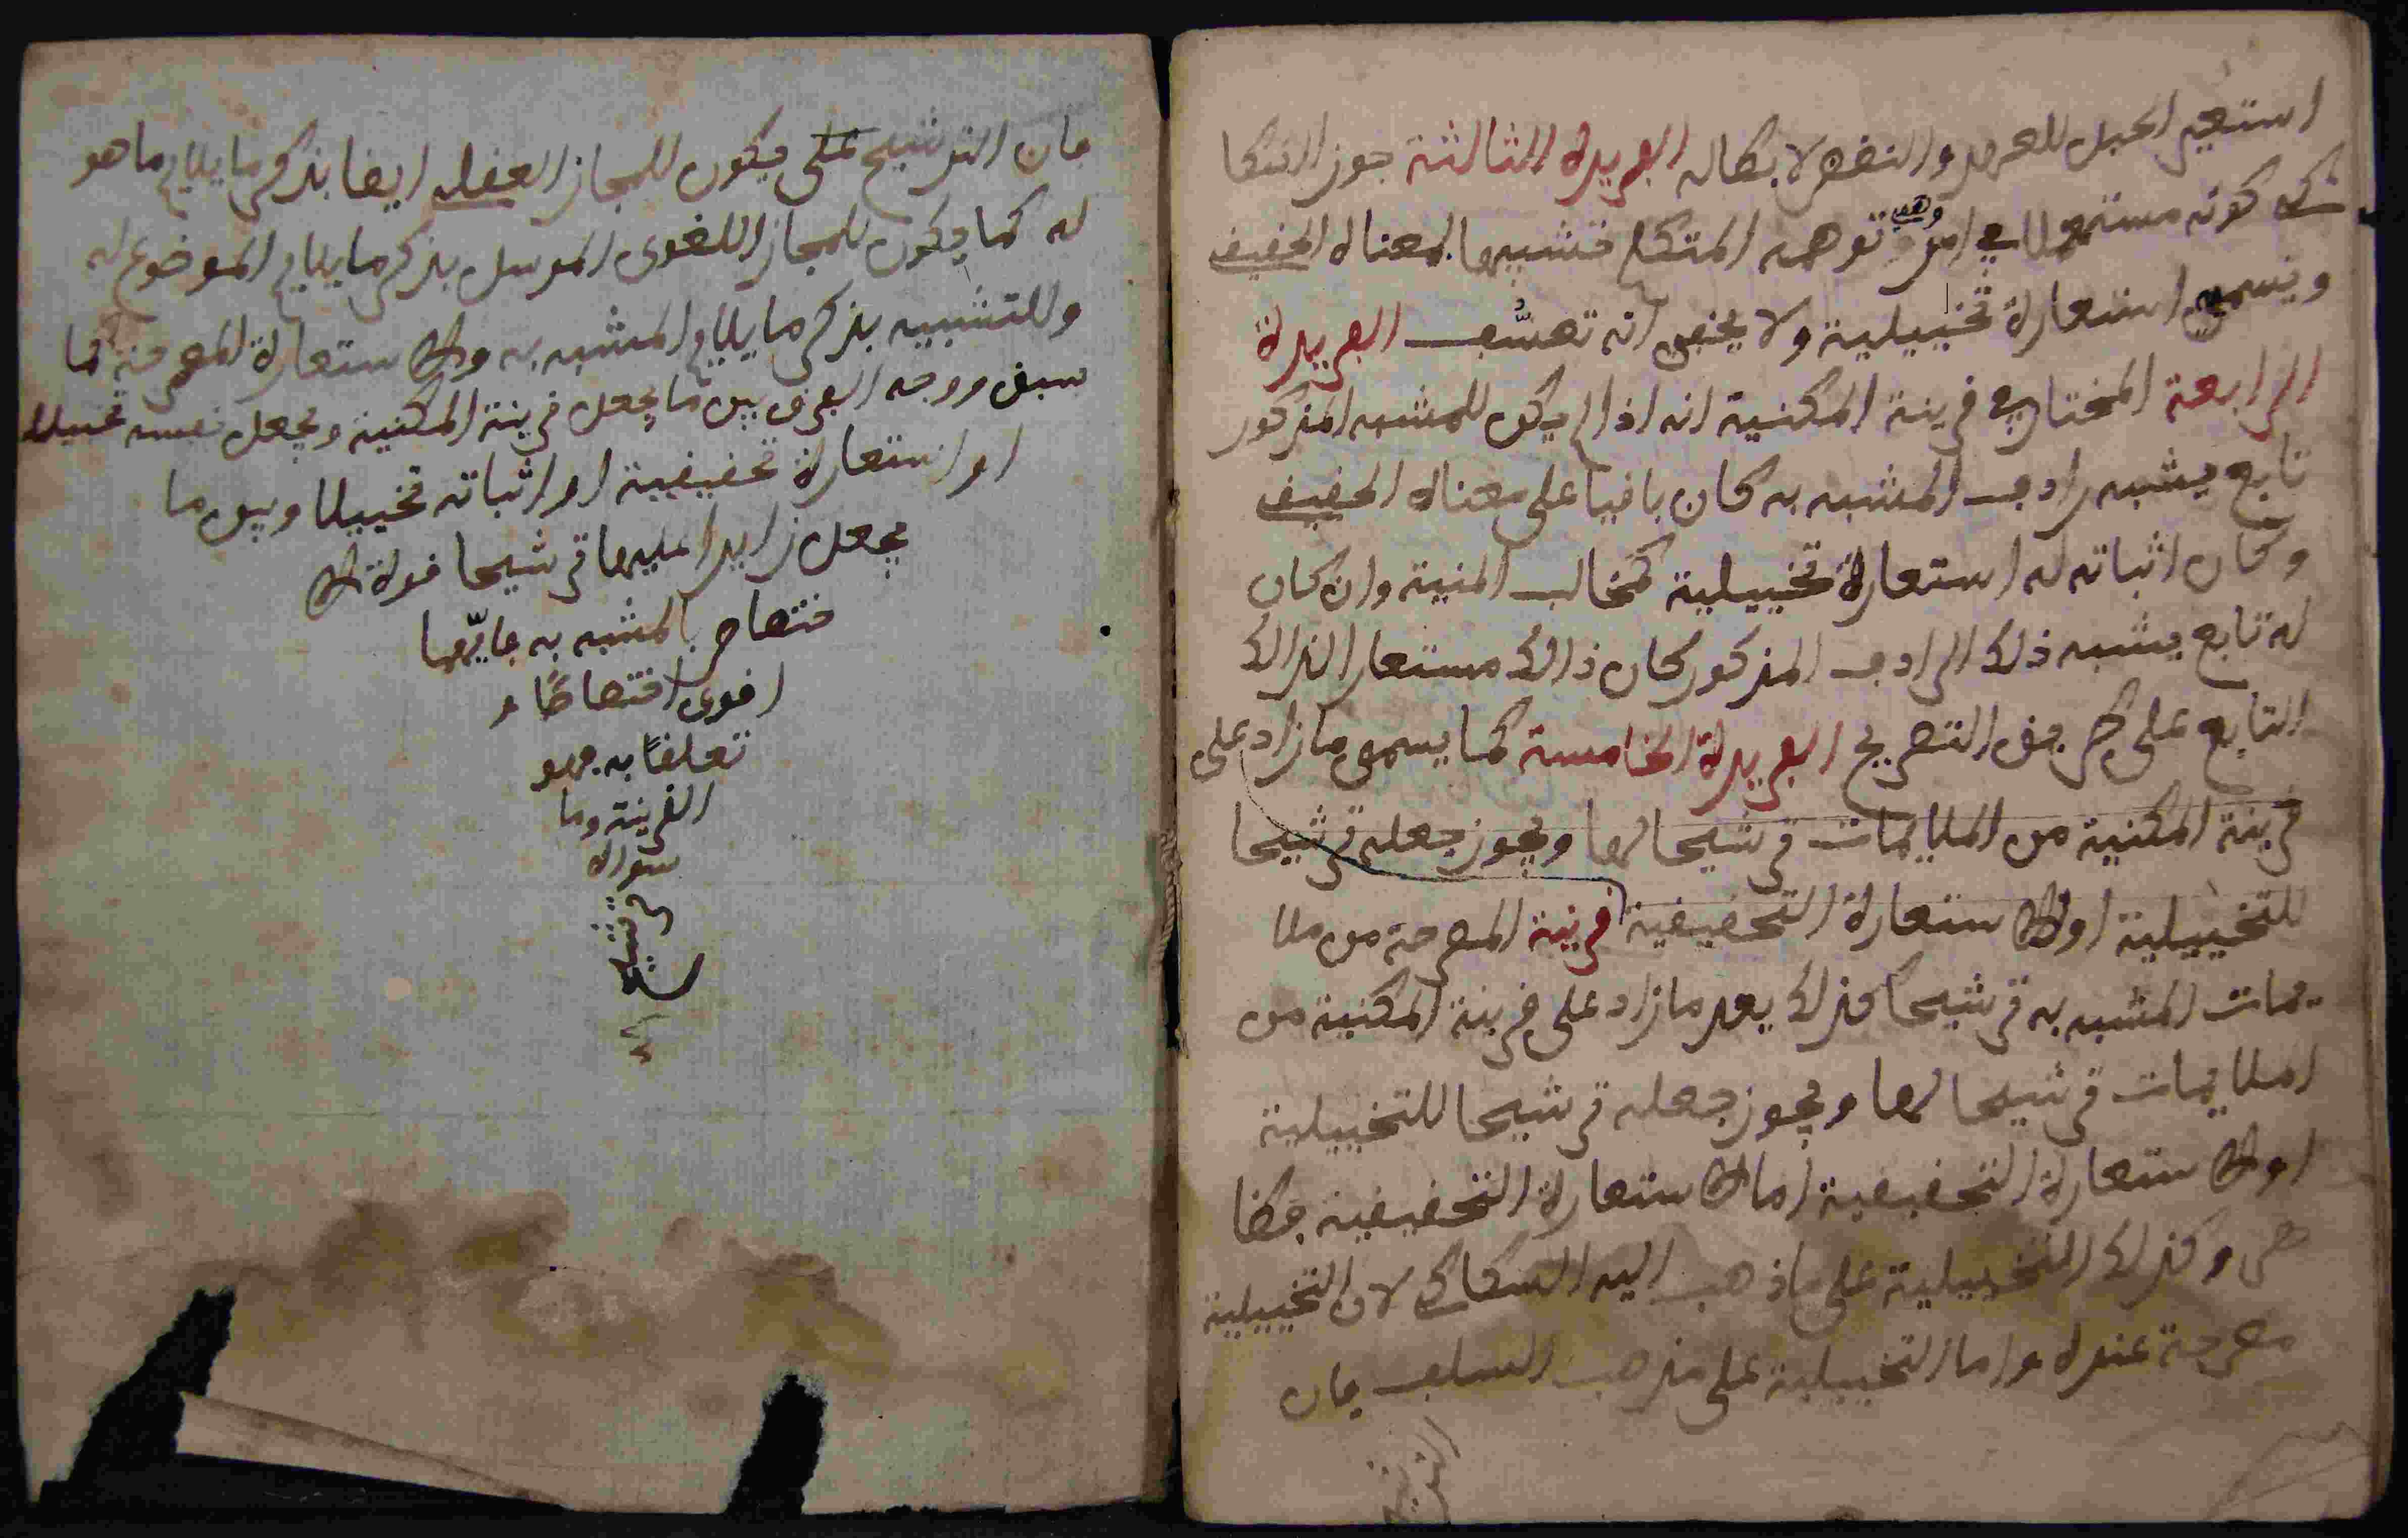 استعير الحبل للعهد والنقض لابطاله الفريدة الثالثة جوز السكا
كي كونه مستعملا في امر وهمي توهمه المتكلم تشبيها لمعناه الحقيقي
ويسمى استعارة تخييلية ولا يخفى انه تعسّف الفريدة
الرابعة المختار في قرينة المكنية انه اذا لم يكن للمشبه المذكور
تابع يشبه رادف المشبه به كان باقيا على معناه الحقيقي
وكان اثباته له استعارة تخييلية كمخالب المنية وان كان
له تابع يشبه ذلك الرادف المذكور كان ذالك مستعارا لذالك
التابع على طريق التصريح الفريدة الخامسة كما يسمى ما زاد على
قرينة المكنية من الملايمات ترشيحا لها ويجوز جعله ترشيحا
للتخييلية او الاستعارة التحقيقية قرينة المصرحة من ملا
يمات المشبه به ترشيحا كذلك يعد ما زاد على قرينة المكنية من
املايمات ترشيحا لها ويجوز جعله ترشيحا للتخييلية
او الاستعارة التحقيقية اما الاستعارة التحقيقية فظا
هر وكذلك التخييلية على ماذهب اليه السكاكي لان التخييلية
مصرحة عنده واما التخييلية على مذهب السلف فان
فان الترشيح على يكون للمجاز العقلي ايضا بذكر ما يلايم ما هو
له كما يكون للمجاز اللغوي المرسل بذكر ما يلايم الموضوع له
وللتشبيه بذكر ما يلايم المشبه به والاستعارة المصرحة كما
سبق ووجه الفرق بين ما يجعل قرينة المكنية ويجعل نفسه تخييلا
او استعارة تحقيقية او اثباته تخييلا وبين ما
يجعل زايدا عليها ترشيحا قوة الا
ختصاص بالمشبه به فايّهما
اقوى اختصاصًا و
تعلقًا به فهو
القرينة وما
سواه
ترشيح